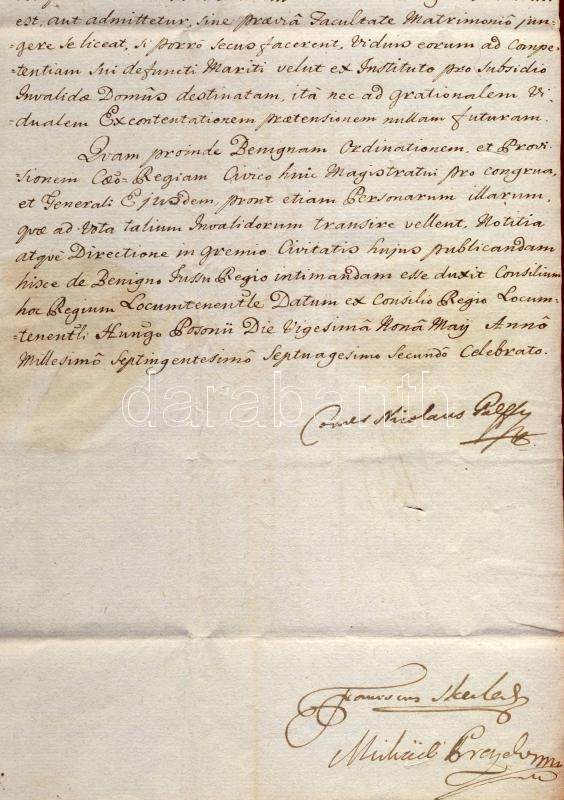 est, aut admittetur, sine praeviâ Facultate Matrimoniô jun-
-gere se liceat, si porrò secus facerent, Viduas eorum ad compe-
-tentiam sui defuncti Mariti velut ex Instituto pro Subsidio
Invalidae Domûs destinatam, ità nec ad grationalem Vi-
dualem Excontentationem praetensionem nullam futuram.
Quam proinde Benignam Ordinationem, et Provi-
-sionem Caeo-Regiam Civico huic Magistratui pro congrua,
et Generali Ejusdem, prout etiam Personarum illarum,
quae ad Vota talium Invalidorum transire vellent, Notitia
atquè Directione in gremio Civitatis hujus publicandam
hisce de Benigno Jussu Regio intimandam esse duxit Consilium
hoc Regium Locumtenentle Datum ex Consilio Regio Locum-
-tenentli Hungo Posonii Die Vigesimâ Nonâ May Annô
Millesimô Septingentesimô Septuagesimo Secundô Celebrato.
darabanth
Comes Nicolaus Palffy
Franciscus
Michäel